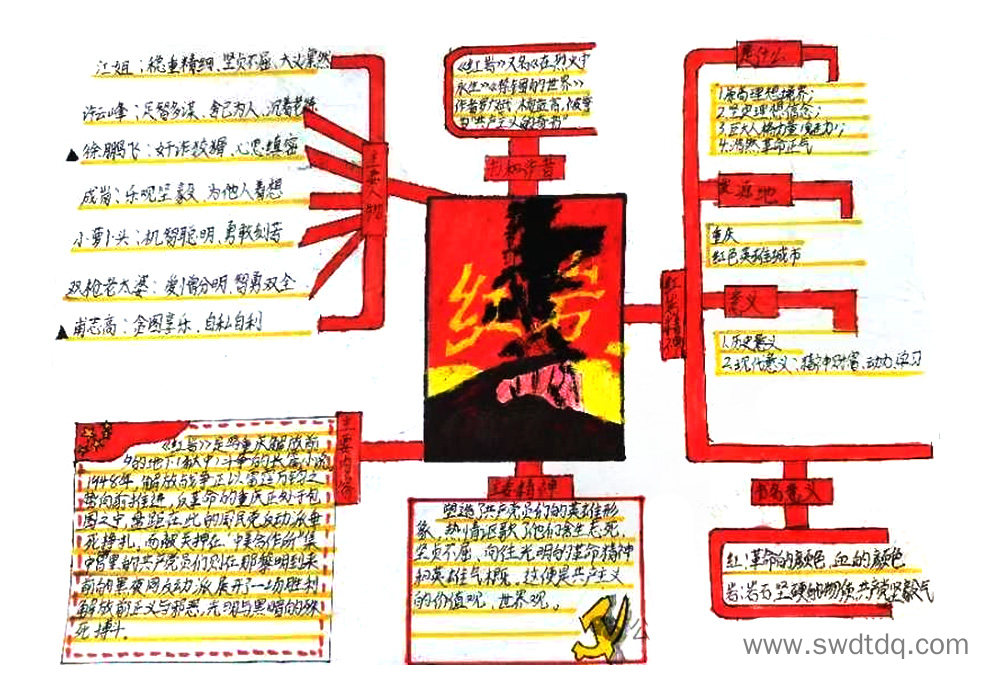 江姐：稳重精细、坚贞不屈、大义凛然
许云峰：足智多谋、舍己为人、沉着老练
▲徐鹏飞：奸诈狡猾、心思缜密
成岗：乐观坚毅、为他人着想
小萝卜头：机智聪明、勇敢刻苦
双枪老太婆：爱憎分明、智勇双全
▲甫志高：贪图享乐、自私自利
主要人物
《红岩》又名《在烈火中
永生》《禁锢的世界》
作者罗广斌、杨益言，被誉
为“共产主义的奇书”
书和作者
红岩
红岩精神
是什么
1.崇高理想境界；
2.坚定理想信念；
3.巨大人格力量(魅力)；
4.浩然革命正气
发源地
重庆
红色英雄城市
意义
1.历史意义
2.现代意义：精神财富、动力、学习
主要内容
《红岩》是写重庆解放前
夕的地下(狱中)斗争的长篇小说
1948年，解放战争正以雷霆万钧之
势向前推进，反革命的重庆正处于包
围之中，盘踞在此的国民党反动派垂
死挣扎。而被关押在“中美合作所”集
中营里的共产党员们则在那黎明到来
前的黑夜同反动派展开了一场胜利
解放前正义与邪恶，光明与黑暗的殊
死搏斗。
主要精神
塑造了共产党员们的英雄形
象，热情讴歌了他们舍生忘死，
坚贞不屈、向往光明的革命精神
和英雄气概，这便是共产主义
的价值观，世界观。
书名意义
红：革命的颜色，血的颜色
岩：岩石 坚硬的物质，共产党坚毅气
www.swdtdq.com